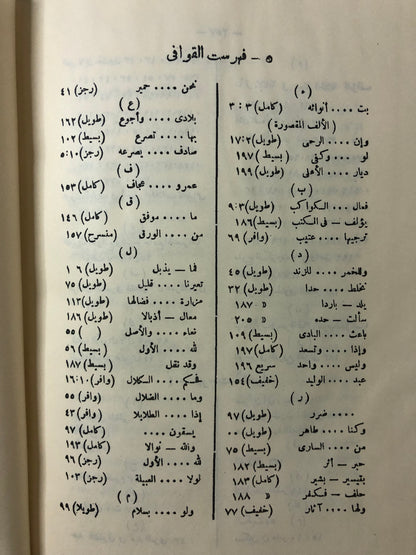 ٥ — فهرست القوافى
(ء)
بت .... أنوائه (كامل) ٣ : ٣
(الألف المقصورة)
وإن .... الرحى (طويل) ١٧:٢
لو .... وكفى (بسيط) ١٩٧
ديار .... الأعلى (طويل) ١٩٩
(ب)
فعال .... الكواكب (طويل) ٩:٣
يؤلف — فى الكتب (بسيط) ١٨٦
ترجيها .... عتيب (وافر) ٦٩
(د)
وللخمر .... للزند (طويل) ٤٥
تخلط .... حدا (طويل) ٣٢
يلد — باردا » ١٨٧
سألت — حده » ٢٠٥
باعث .... البادى (بسيط) ١٠٩
وإذا .... وتسعد (كامل) ١٩٧
وليس .... واحد سريع ١٩٦
عبد .... الوليد (خفيف) ١٥٤
(ر)
.... ضرر (طويل) ٩٧
وكنا .... طاهر (طويل)
من .... السارى (بسيط) ٧٥
حبر — أثر (بسيط) ١٨٢
بتيسير — بشير (طويل) ١٨٣
حلف — فكفر » ١٨٨
ولها .... ٢ ثار (خفيف) ٧٧
نحن .... حمير (رجز) ٤١
(ع)
بلادى .... وأجوع (طويل) ١٦٢
بها .... تصرع (بسيط) ١٠٢
صادف .... يصرعه (رجز) ٥:١٠
(ف)
عمرو .... عجاف (كامل) ١٥٣
(ق)
ما .... موفق (كامل) ١٤٦
من .... الورق (منسرح) ١٥٧
(ل)
فما — يذبل (طويل)
تعيرنا .... قليل (طويل) ٧٥
مزارة .... فضالها (طويل) ١١٣
معال — أذيالا (طويل) ١٨٦
نعاء .... والأصل ( ) ٥٥
لله .... الأول (بسيط) ٥٦
وقد نقل (بسيط) ١٨٧
فحسبكم .... الكلال (وافر) ١٦:١٠
وما .... الضلال (وافر) ٥٥
إذا .... الطلابلا (وافر) ٤٣
يسقون .... (كامل) ٩٧
والله — نوالا (كامل) ١٩٣
لله .... الأول (رجز) ٩٦
لولا .... العبيلة (رجز) ١٠٣
(م)
ولو .... بسلام (طويلا) ٩٩